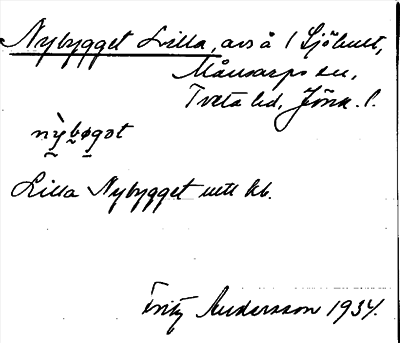 Nybygget Lilla, avs å 1 Sjöhult,
Månsarps sn,
Tveta hd, Jönk. l.
nỳbøgət
Lilla Nybygget uttl kb.
Fritz Andersson 1934.